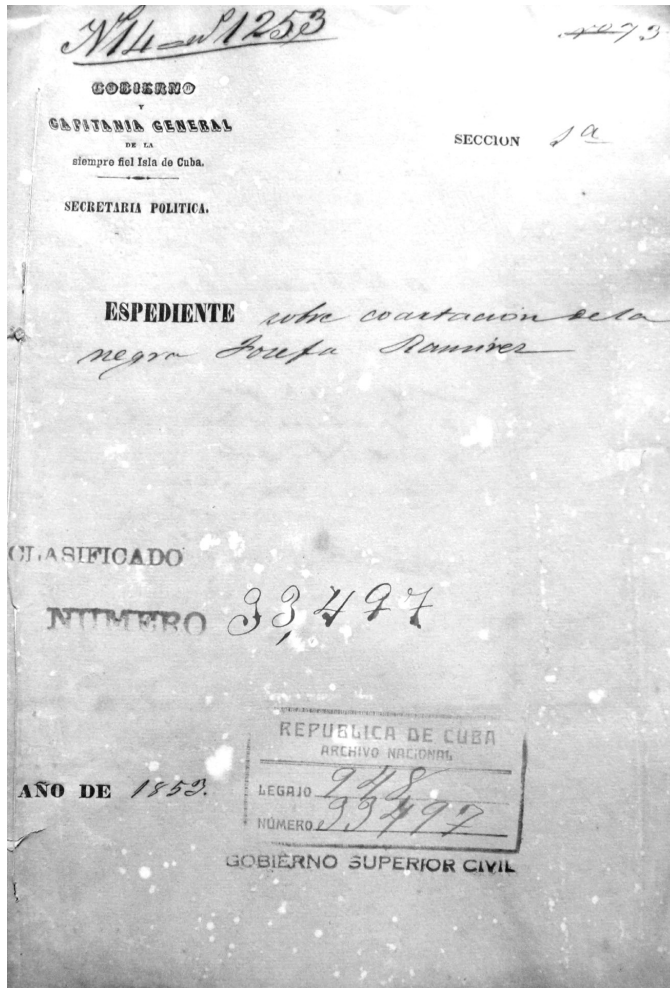 Nº 14=nº 1253
73
GOBIERNO
Y
CAPITANIA GENERAL
DE LA
siempre fiel Isla de Cuba.
SECRETARIA POLITICA.
SECCION 1ª
ESPEDIENTE sobre coartacion de la
negra Josefa Ramirez
CLASIFICADO
NUMERO 33,497
REPUBLICA DE CUBA
ARCHIVO NACIONAL
LEGAJO 948
NÚMERO 33497
AÑO DE 1853.
GOBIERNO SUPERIOR CIVIL